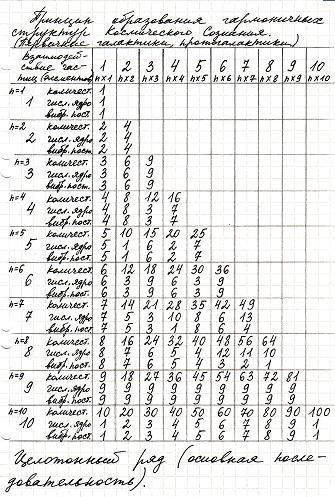 Принцип образования гармоничных
структур Космического Сознания.
(Первичные галактики, протогалактики)
Взаимодей-
ствие час-
тиц (элементов)
1 2 3 4 5 6 7 8 9 10
n×1 n×2 n×3 n×4 n×5 n×6 n×7 n×8 n×9 n×10
n=1 количест. 1
1 числ. ядро 1
вибр. пост. 1
n=2 количест. 2 4
2 числ. ядро 2 4
вибр. пост. 2 4
n=3 количест. 3 6 9
3 числ. ядро 3 6 9
вибр. пост. 3 6 9
n=4 количест. 4 8 12 16
4 числ. ядро 4 8 3 7
вибр. пост. 4 8 3 7
n=5 количест. 5 10 15 20 25
5 числ. ядро 5 1 6 2 7
вибр. пост. 5 1 6 2 7
n=6 количест. 6 12 18 24 30 36
6 числ. ядро 6 3 9 6 3 9
вибр. пост. 6 3 9 6 3 9
n=7 количест. 7 14 21 28 35 42 49
7 числ. ядро 7 5 3 10 8 6 13
вибр. пост. 7 5 3 1 8 6 4
n=8 количест. 8 16 24 32 40 48 56 64
8 числ. ядро 8 7 6 5 4 12 11 10
вибр. пост. 8 7 6 5 4 3 2 1
n=9 количест. 9 18 27 36 45 54 63 72 81
9 числ. ядро 9 9 9 9 9 9 9 9 9
вибр. пост. 9 9 9 9 9 9 9 9 9
n=10 количест. 10 20 30 40 50 60 70 80 90 100
10 числ. ядро 1 2 3 4 5 6 7 8 9 1
вибр. пост. 1 2 3 4 5 6 7 8 9 1
Целотонный ряд (основная после-
довательность).